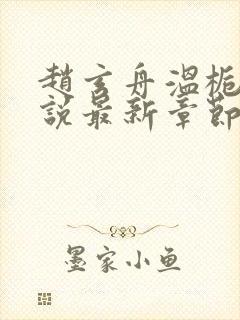 趙玄舟溫梔
說最新章節
墨家小鱼